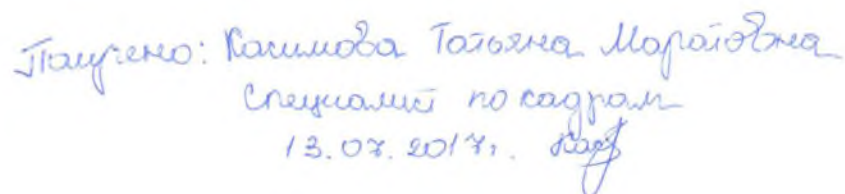 Получено: Касимова Татьяна Маратовна
специалист по кадрам
13.07.2017г.